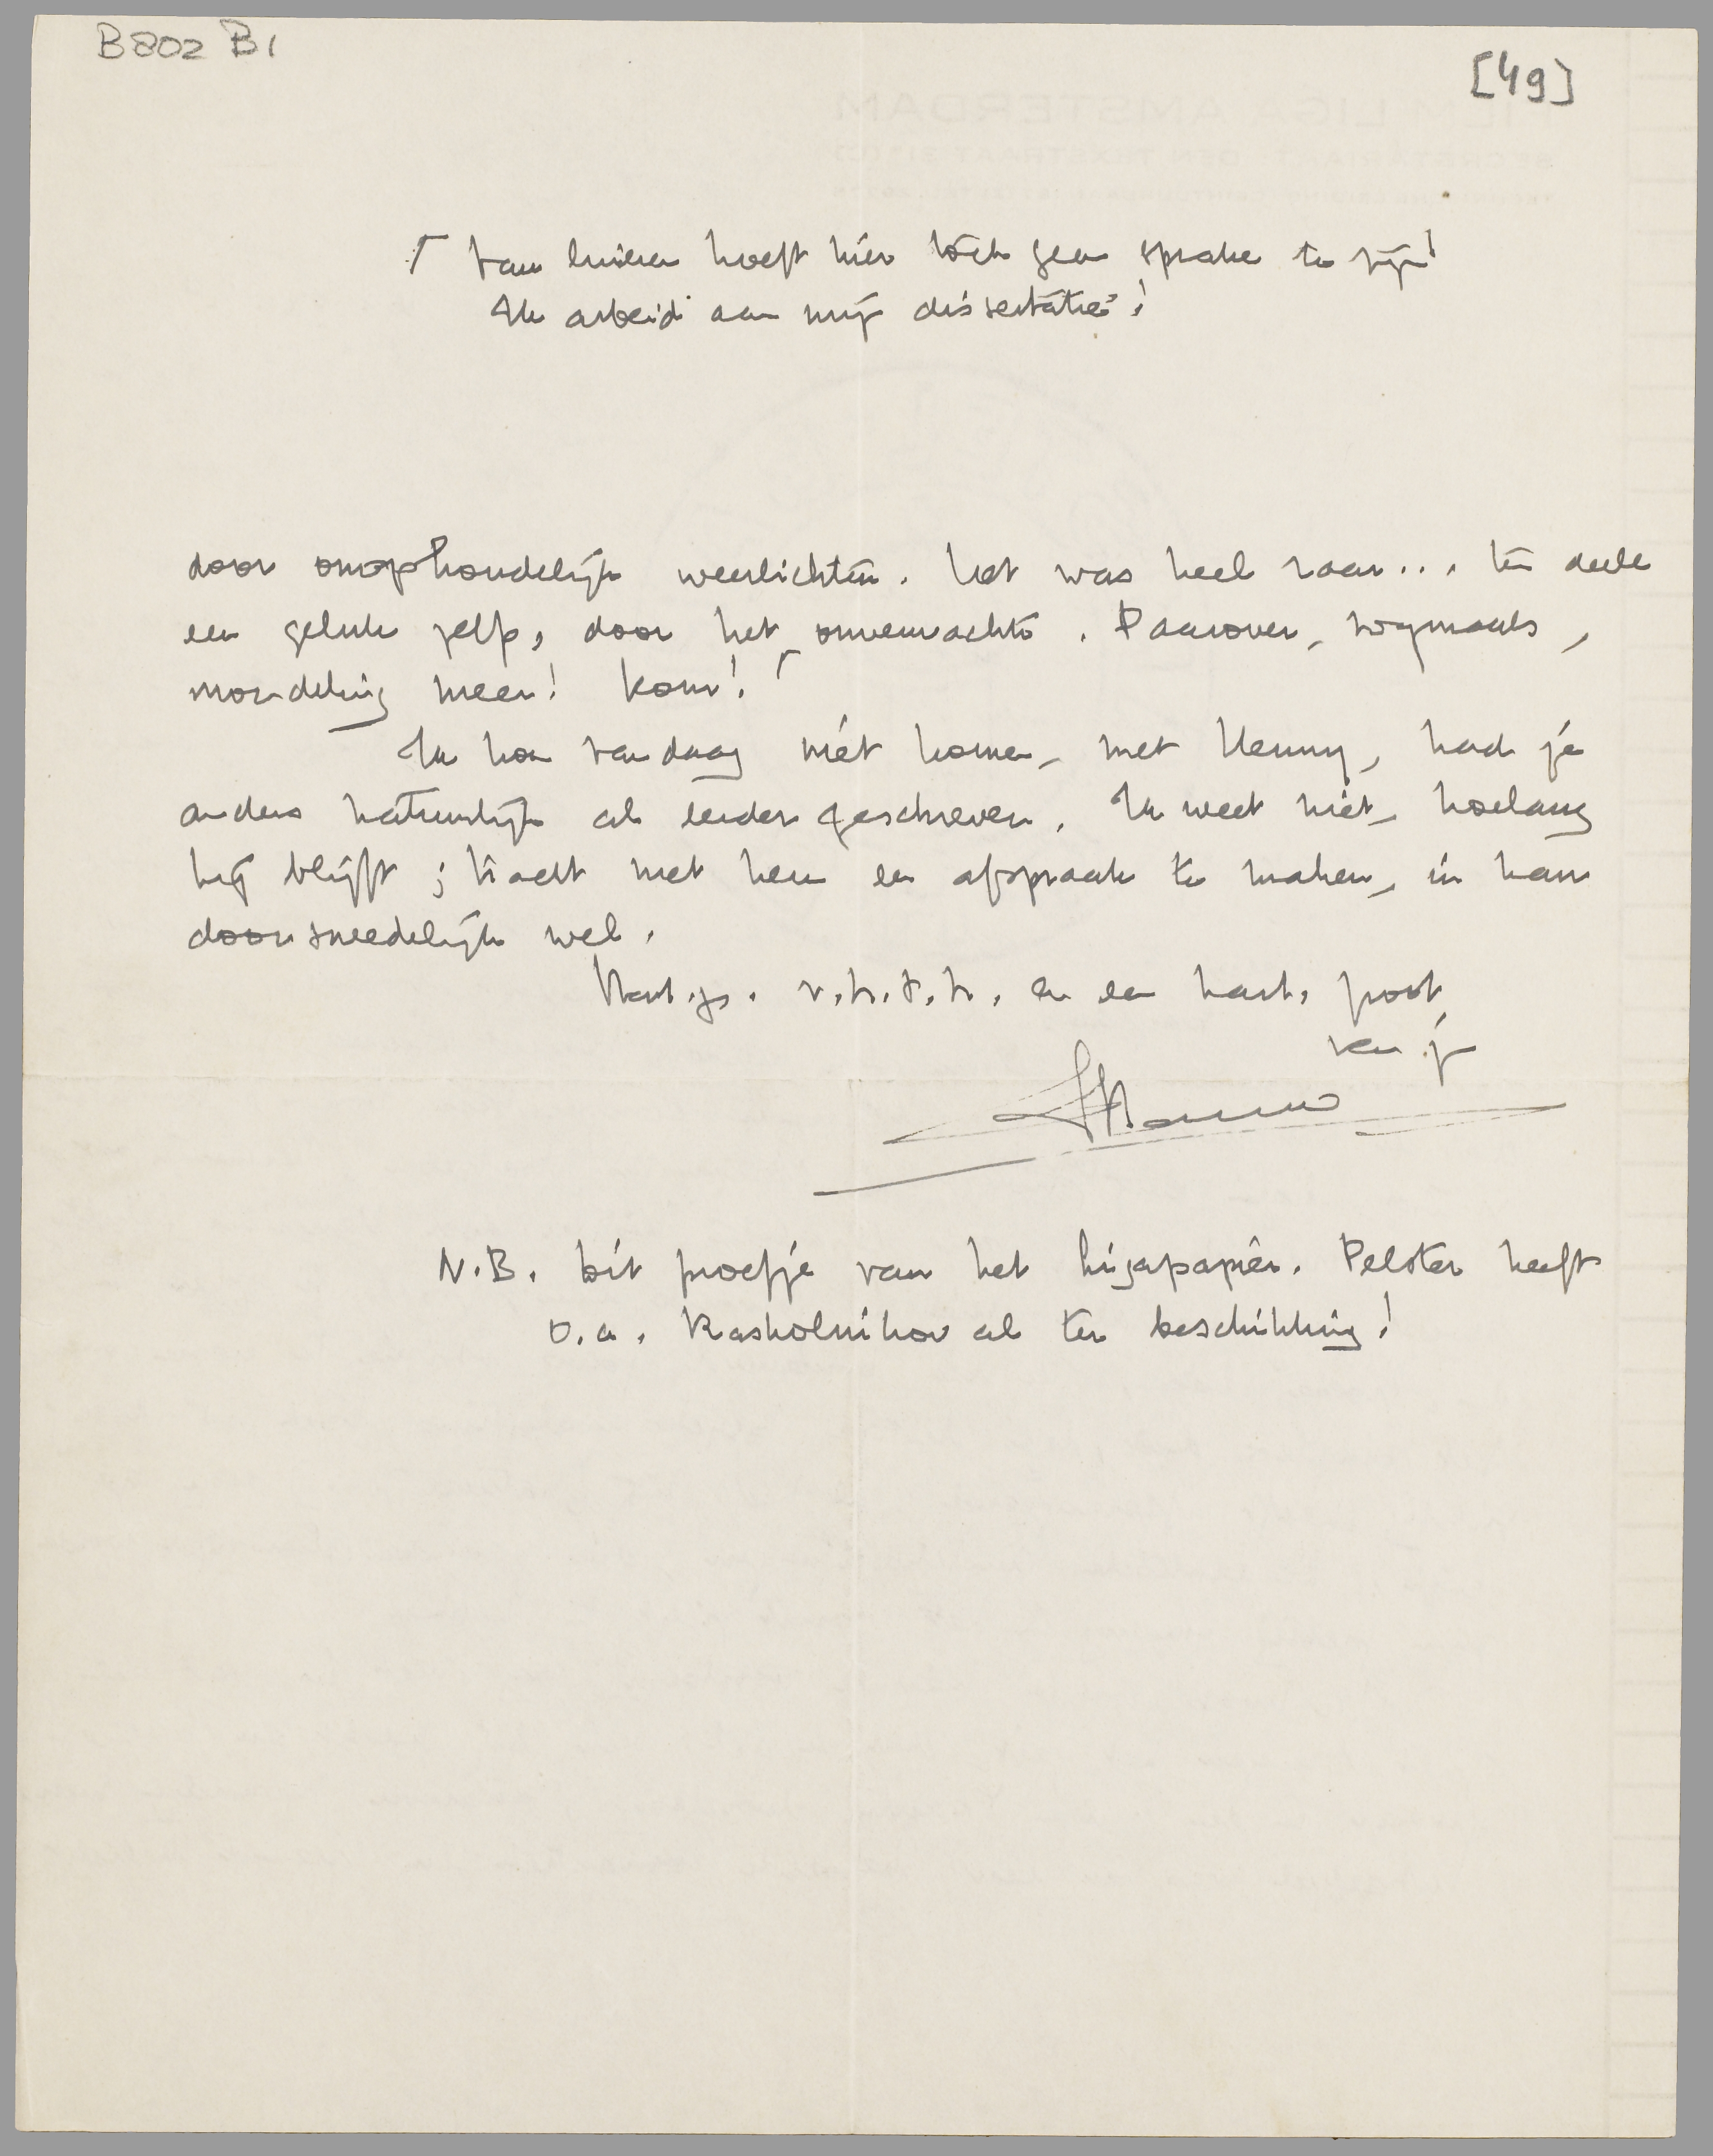 B802 B1
[49]
Van luieren hoeft hier toch geen sprake te zijn!
Ik arbeid aan mijn dissertatie!
door onophoudelijk weerlichten. Het was heel raar... ten deele
een geluk zelfs, door het onverwachte. Daarover, nogmaals,
mondeling meer! Kom! Γ
Ik kon vandaag niet komen, met Henny, had je
anders natuurlijk al eerder geschreven. Ik weet niet, hoelang
hij blijft; tracht met hem een afspraak te maken, ik kan
doorsneedelijk wel.
Hart. gr. v.h.t.h. en een hart. poot,
van je
Menno
N.B. Dit proefje van het Ligapapier. Pelster heeft
o.a. Raskolnikov al ter beschikking!